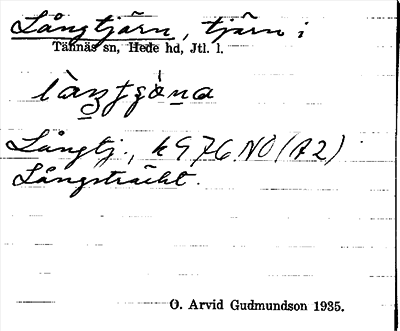 Långtjärn, tjärn i
Tännäs sn, Hede hd, Jtl. l.
Långtj., k976 NO (A2)
Långsträckt.
O. Arvid Gudmundson 1935.